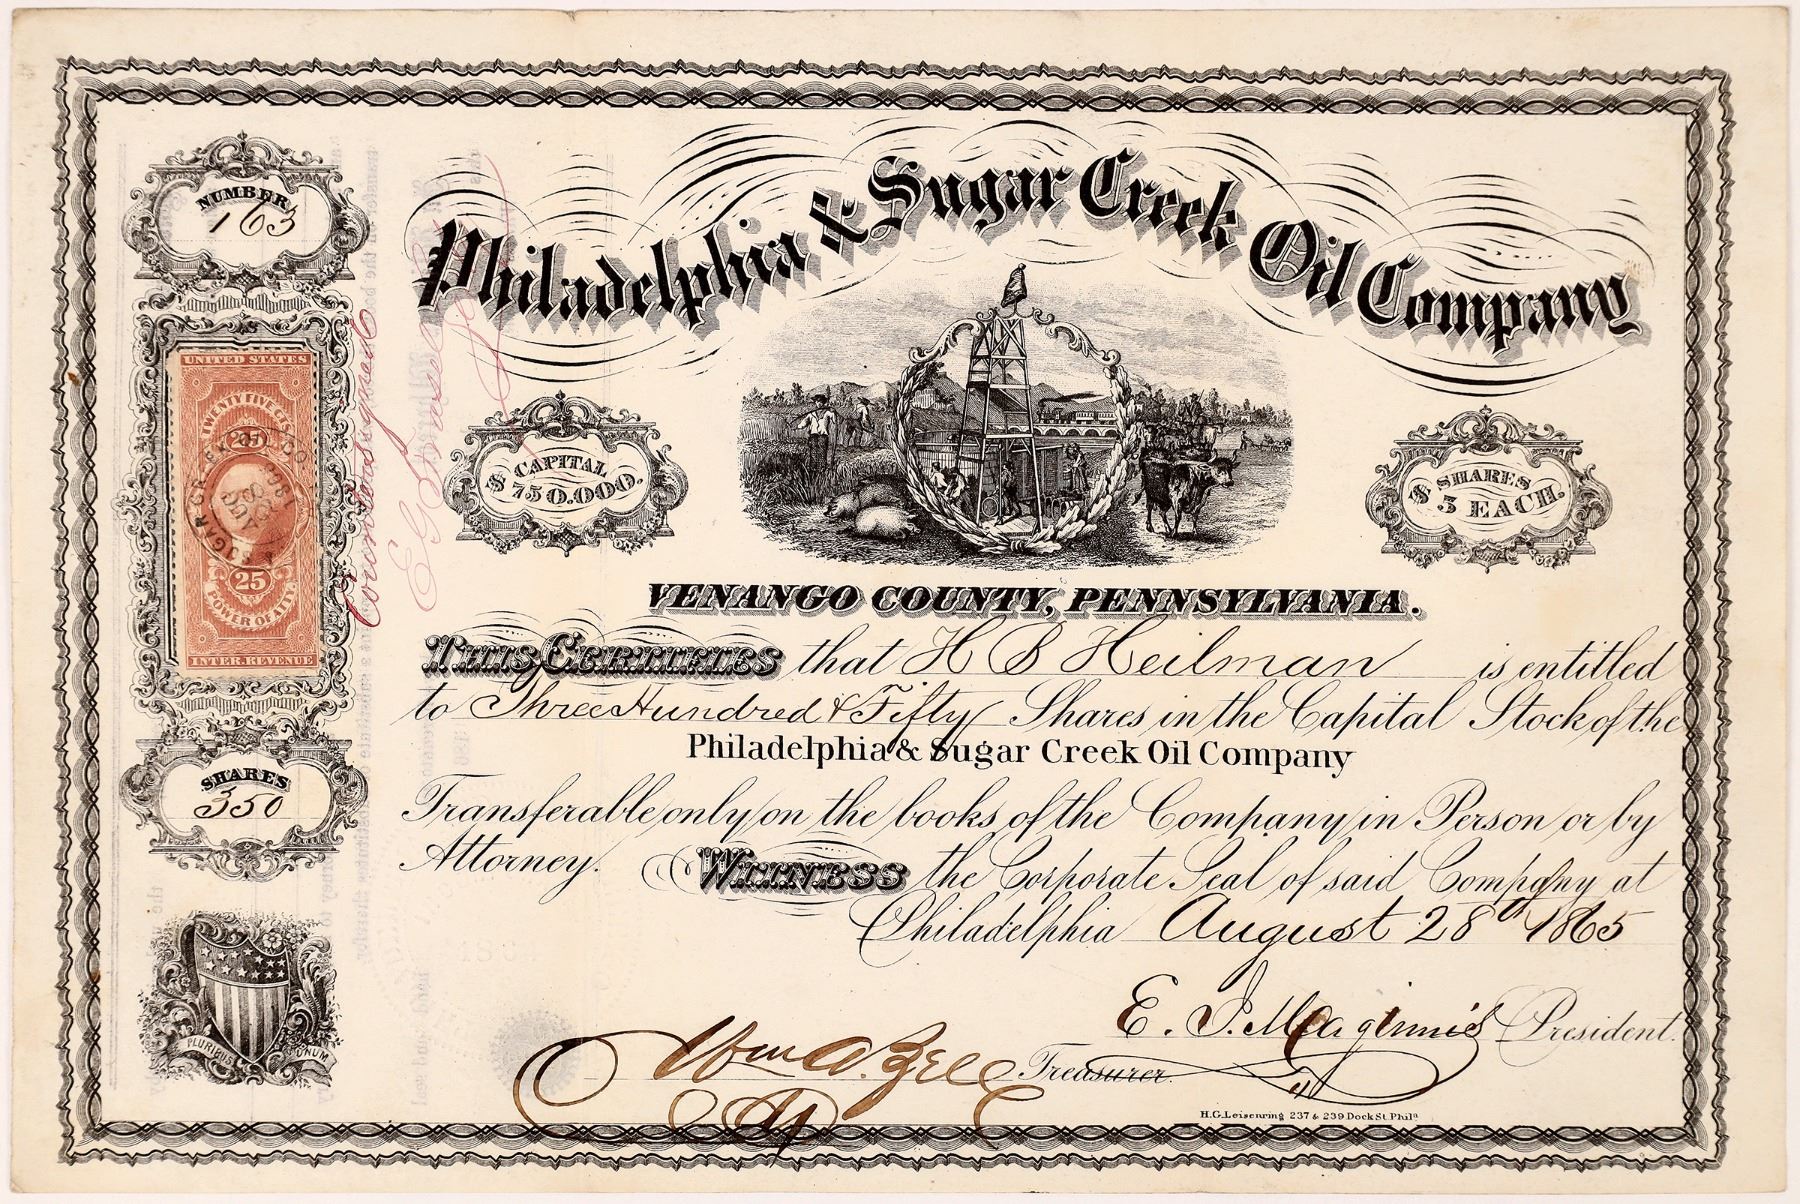 Philadelphia & Sugar Creek Oil Company
NUMBER
163
UNITED STATES
TWENTY FIVE CTS
25
25
POWER OF ATT'Y
INTER. REVENUE
Countersigned
CAPITAL
$750.000.
SHARES
$ 3 EACH.
VENANGO COUNTY, PENNSYLVANIA.
THIS CERTIFIES that H B Heilman is entitled
to Three Hundred & Fifty Shares in the Capital Stock of the
Philadelphia & Sugar Creek Oil Company
SHARES
350
Transferable only on the books of the Company in Person or by
Attorney. WITNESS the Corporate Seal of said Company at
Philadelphia August 28th 1865
PLURIBUS UNUM
E. J. Maginnis President.
Wm A. Zell Treasurer.
H.G. Leisenring 237 & 239 Dock St. Phila